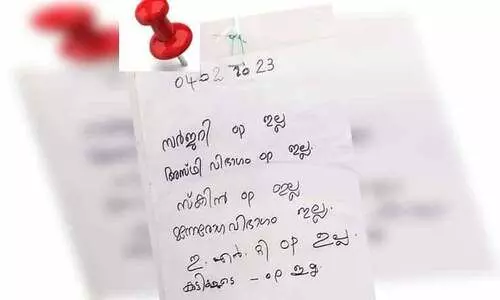 04 02 20 23
സർജറി op ഇല്ല
അസ്ഥി വിഭാഗം op ഇല്ല.
സ്കിൻ op ഇല്ല
ഇല്ല.
ഇ. എൻ. റ്റി op ഇല്ല.
കുട്ടികളുടെ – op ഇല്ല